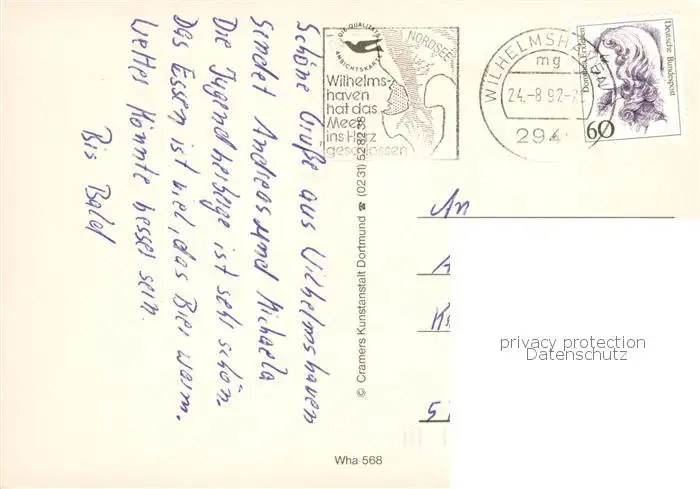 Schöne Grüße aus Wilhelmshaven
sendet Andreas und Michaela
Die Jugendherberge ist sehr schön.
Das Essen ist viel, das Bier warm.
Wetter könnte besser sein.
Bis Bald
DIE QUALITÄTS
ANSICHTSKARTE
NORDSEE
Wilhelms-
haven
hat das
Meer
ins Herz
geschlossen
WILHELMSHAVEN
mg
24.-8.92-
294
Deutsche Bundespost
60
© Cramers Kunstanstalt Dortmund ☎ (0231) 528238
An
privacy protection
Datenschutz
Wha 568